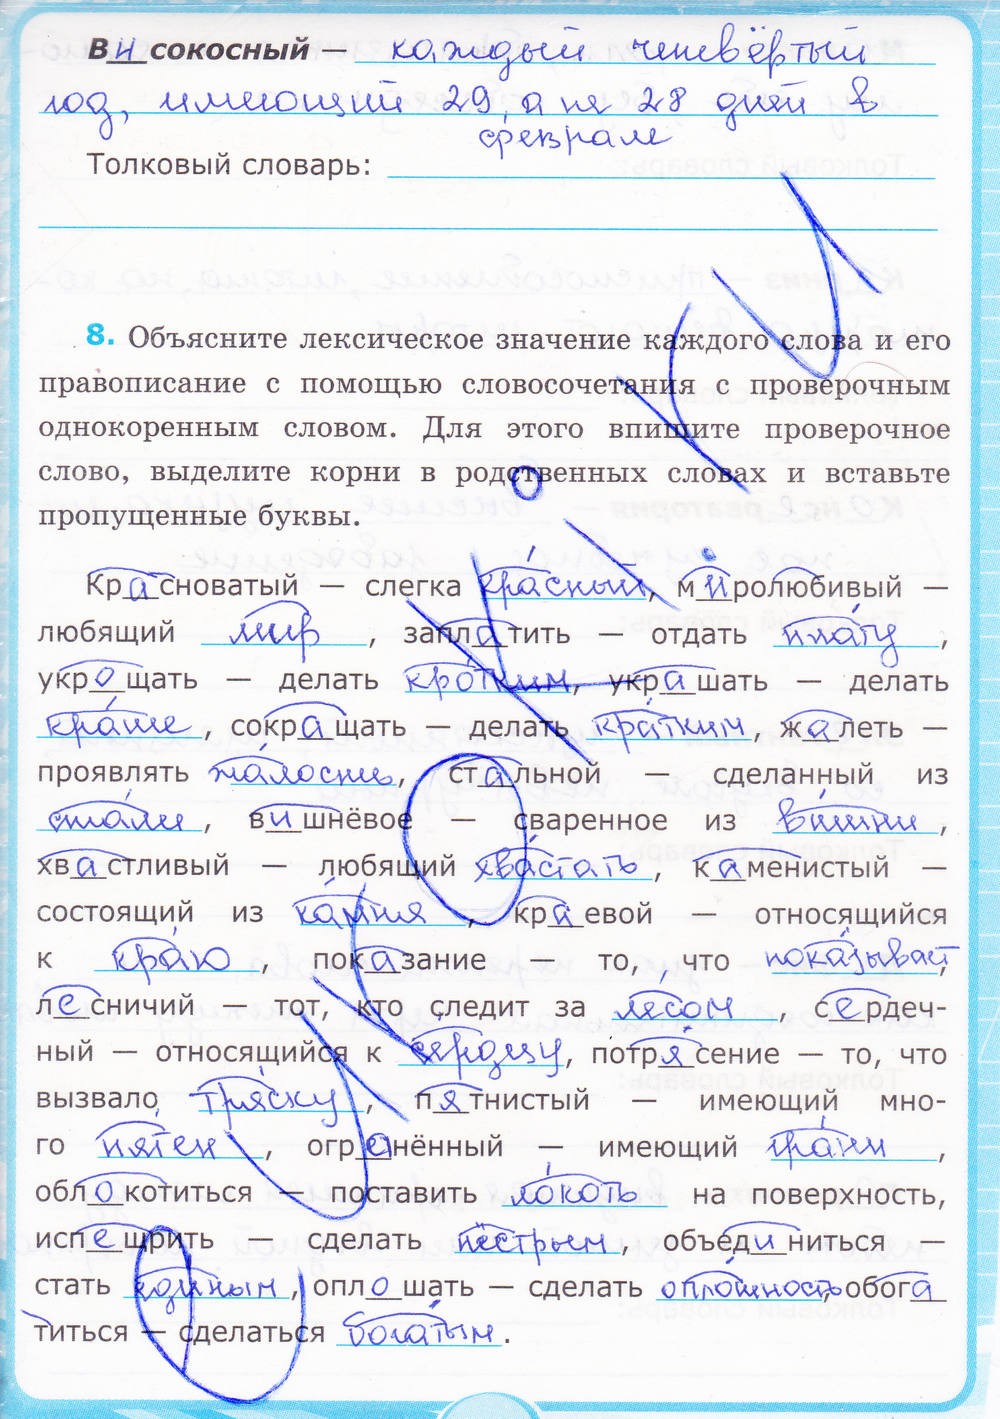 Високосный – каждый четвёртый
год, имеющий 29, а не 28 дней в
феврале
Толковый словарь:
8. Объясните лексическое значение каждого слова и его
правописание с помощью словосочетания с проверочным
однокоренным словом. Для этого впишите проверочное
слово, выделите корни в родственных словах и вставьте
пропущенные буквы.
Красноватый — слегка красный, миролюбивый —
любящий мир, заплатить — отдать плату,
укрощать — делать кротким, украшать — делать
краше, сокращать — делать кратким жалеть —
проявлять жалость, стальной — сделанный из
стали, вишнёвое — сваренное из вишни,
хвастливый — любящий хвастать, каменистый —
состоящий из камня, краевой — относящийся
к краю, показание — то, что показывает,
лесничий — тот, кто следит за лесом, сердеч-
ный — относящийся к сердцу, потрясение — то, что
вызвало тряску, пятнистый — имеющий мно-
го пятен, огранённый — имеющий грани,
облокотиться — поставить локоть на поверхность,
испещрить — сделать пёстрым, объединиться —
стать единым, оплошать — сделать оплошность, обога
титься — сделаться богатым.